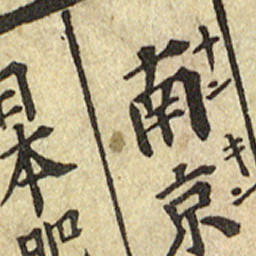 南京
ナンキン
日本肥